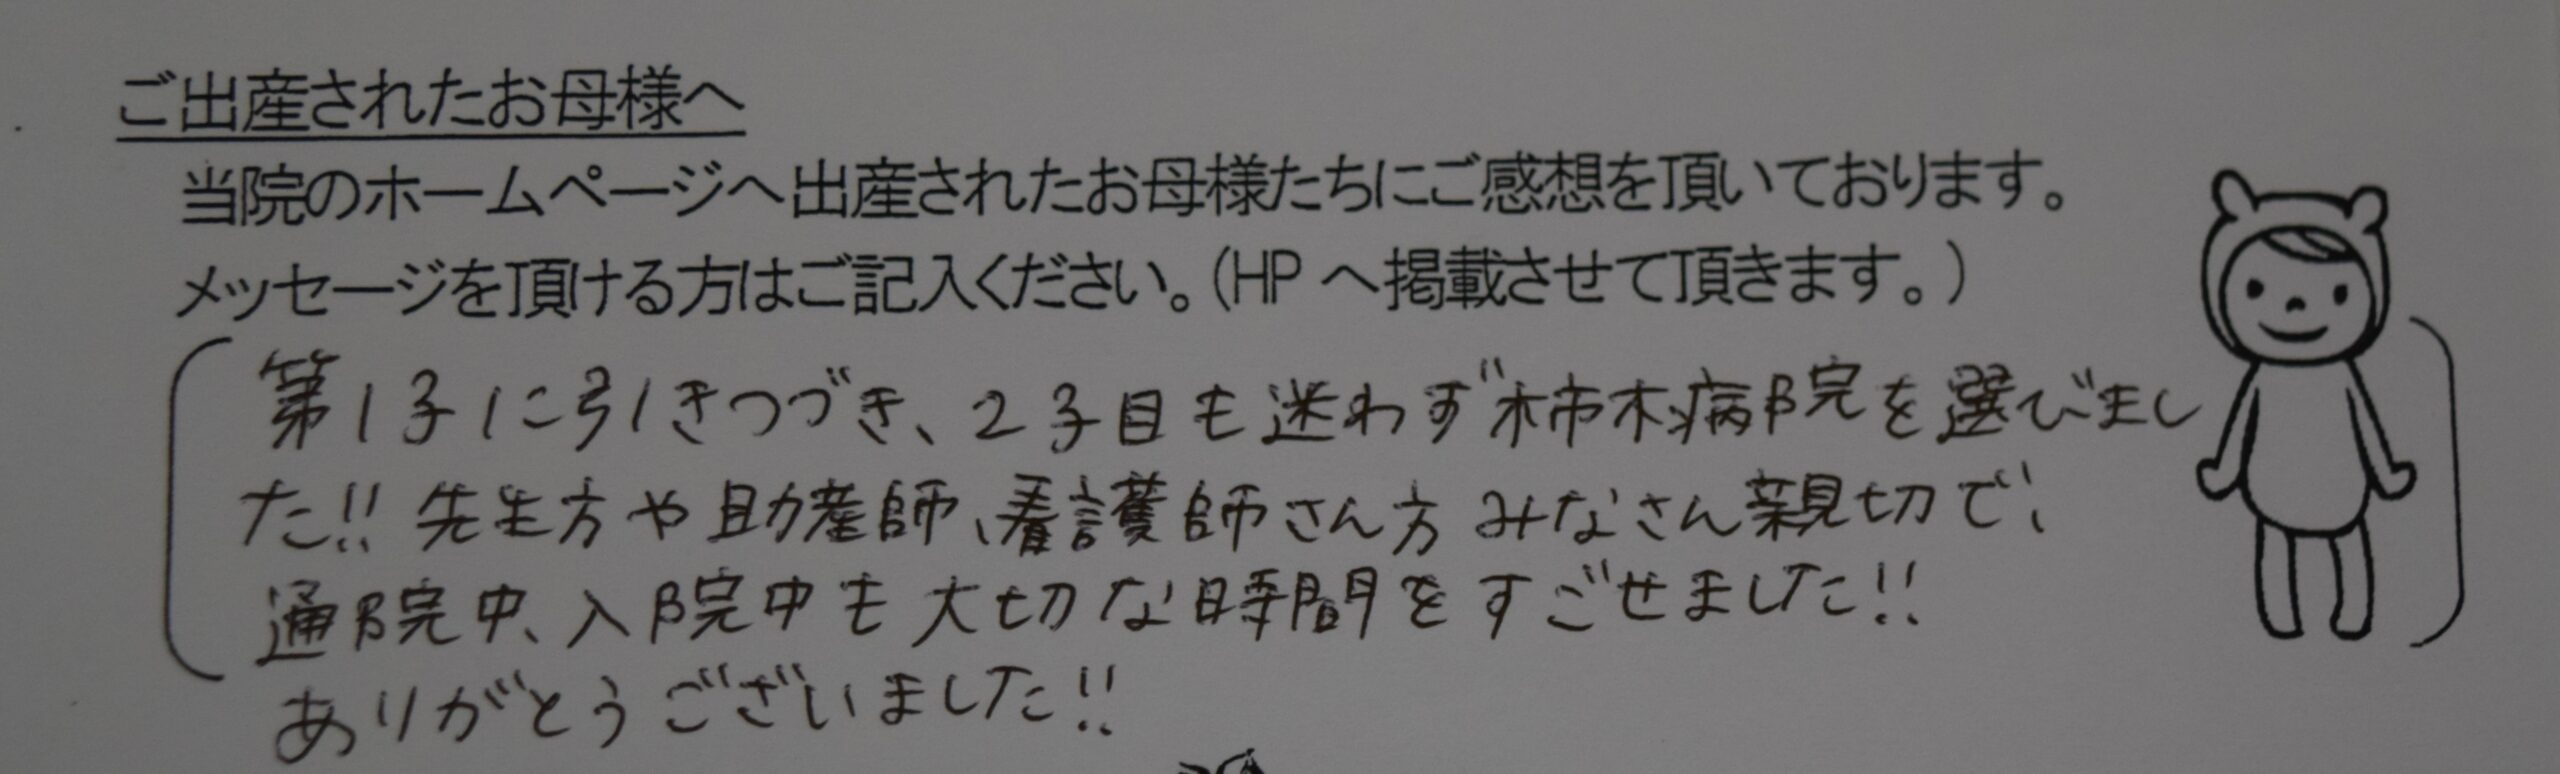 ご出産されたお母様へ
当院のホームページへ出産されたお母様たちにご感想を頂いております。
メッセージを頂ける方はご記入ください。(HP へ掲載させて頂きます。)
第1子に引きつづき、2子目も迷わず柿木病院を選びまし
た!! 先生方や助産師、看護師さん方みなさん親切で、
通院中、入院中も大切な時間をすごせました!!
ありがとうございました!!